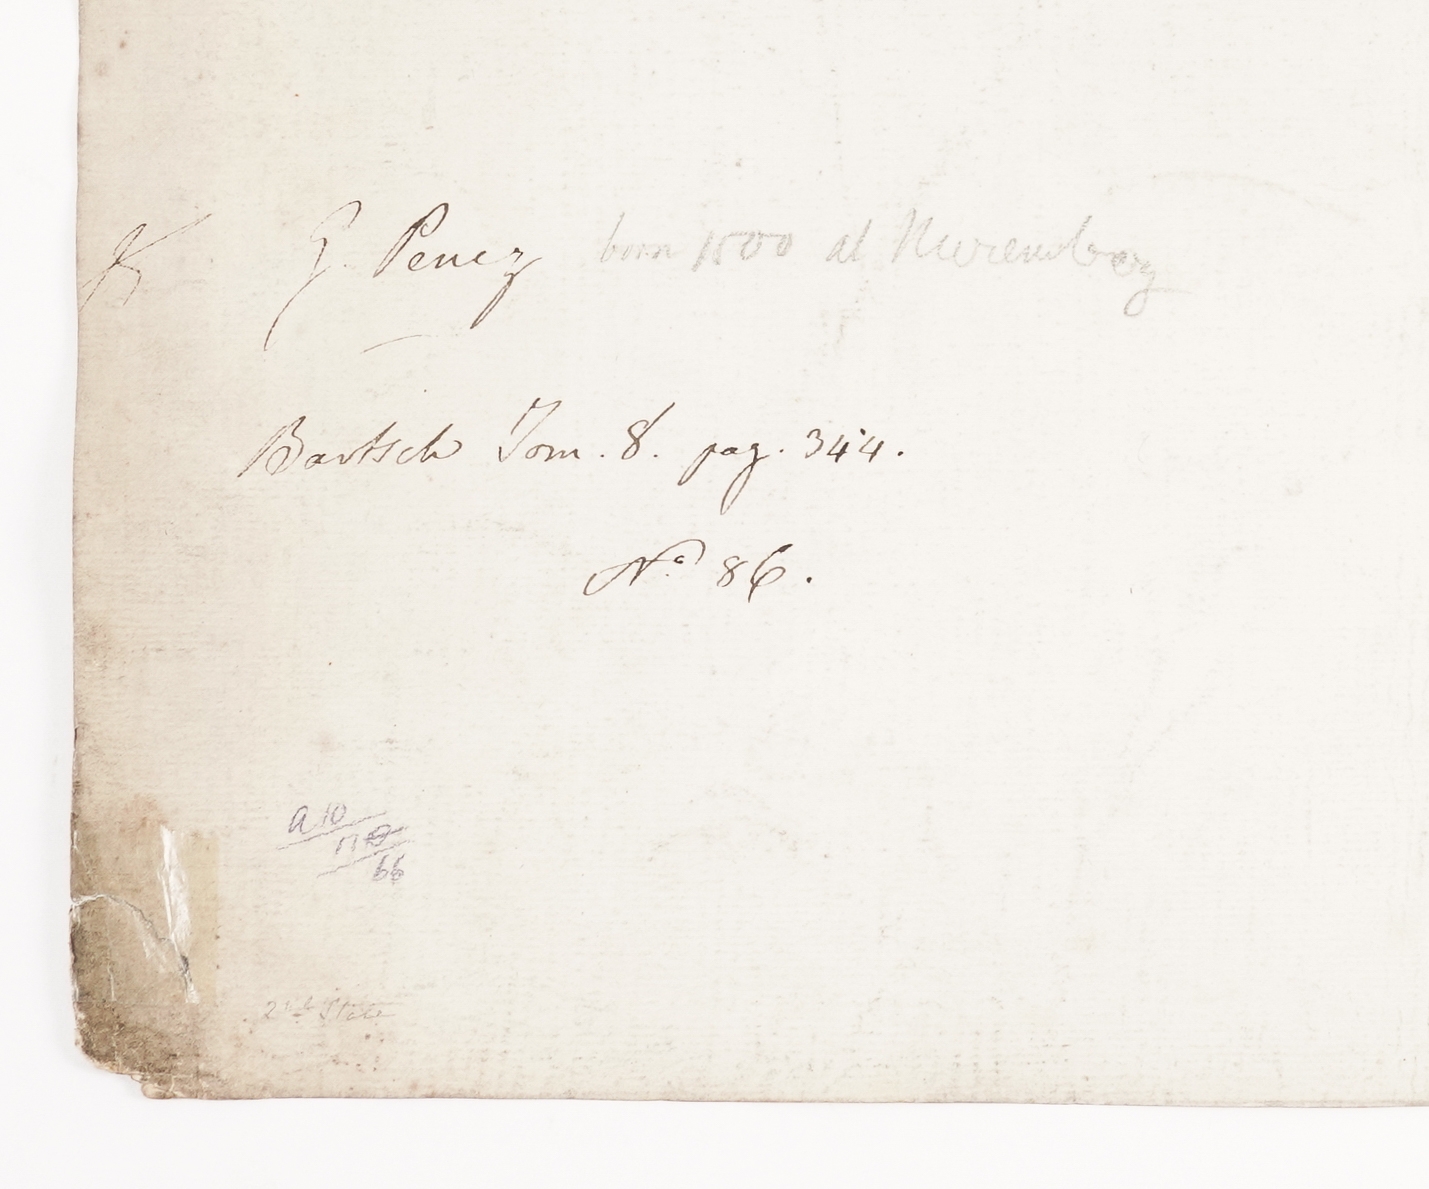 G. Pencz born 1500 at Nuremberg
Bartsch Tom. 8. pag. 344.
No. 86.
a 10
66
State